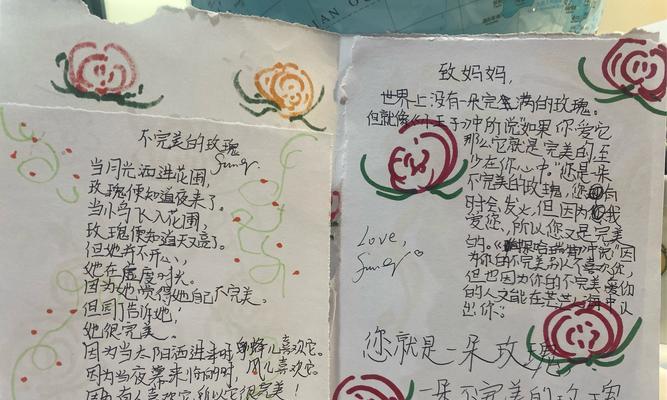 IAN O
不完美的玫瑰
当月光洒进花圃,
玫瑰便知道夜来了。
当小鸟飞入花圃,
玫瑰便知道天亮了。
但她并不开心,
她在虚度时光。
因为她觉得她自己不完美。
但园丁告诉她:
她很完美。
因为当太阳洒进来时,蜂儿喜欢它。
因为当夜幕来临时,风儿喜欢它。
因为有人喜欢它,所以它很完美!
致妈妈,
世界上没有一朵完全满的玫瑰。
但就像《小王子》中所说"如果你爱它
那么它就是完美的,至
少在你心中。"您是一朵
不完美的玫瑰,您有
时会发火,但因为我
爱您,所以您又是完美
的。中说"因
为你的不完美别人不喜欢你,
但也因为你的不完美爱你
的人又能在茫茫人海中认
出你:
Love,
您就是一朵玫瑰
一朵不完美的玫瑰